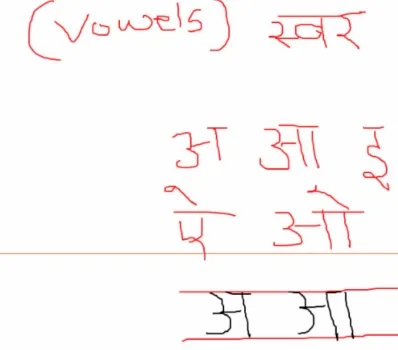 (Vowels) स्वर
अ आ इ
ऐ ओ
अ आ